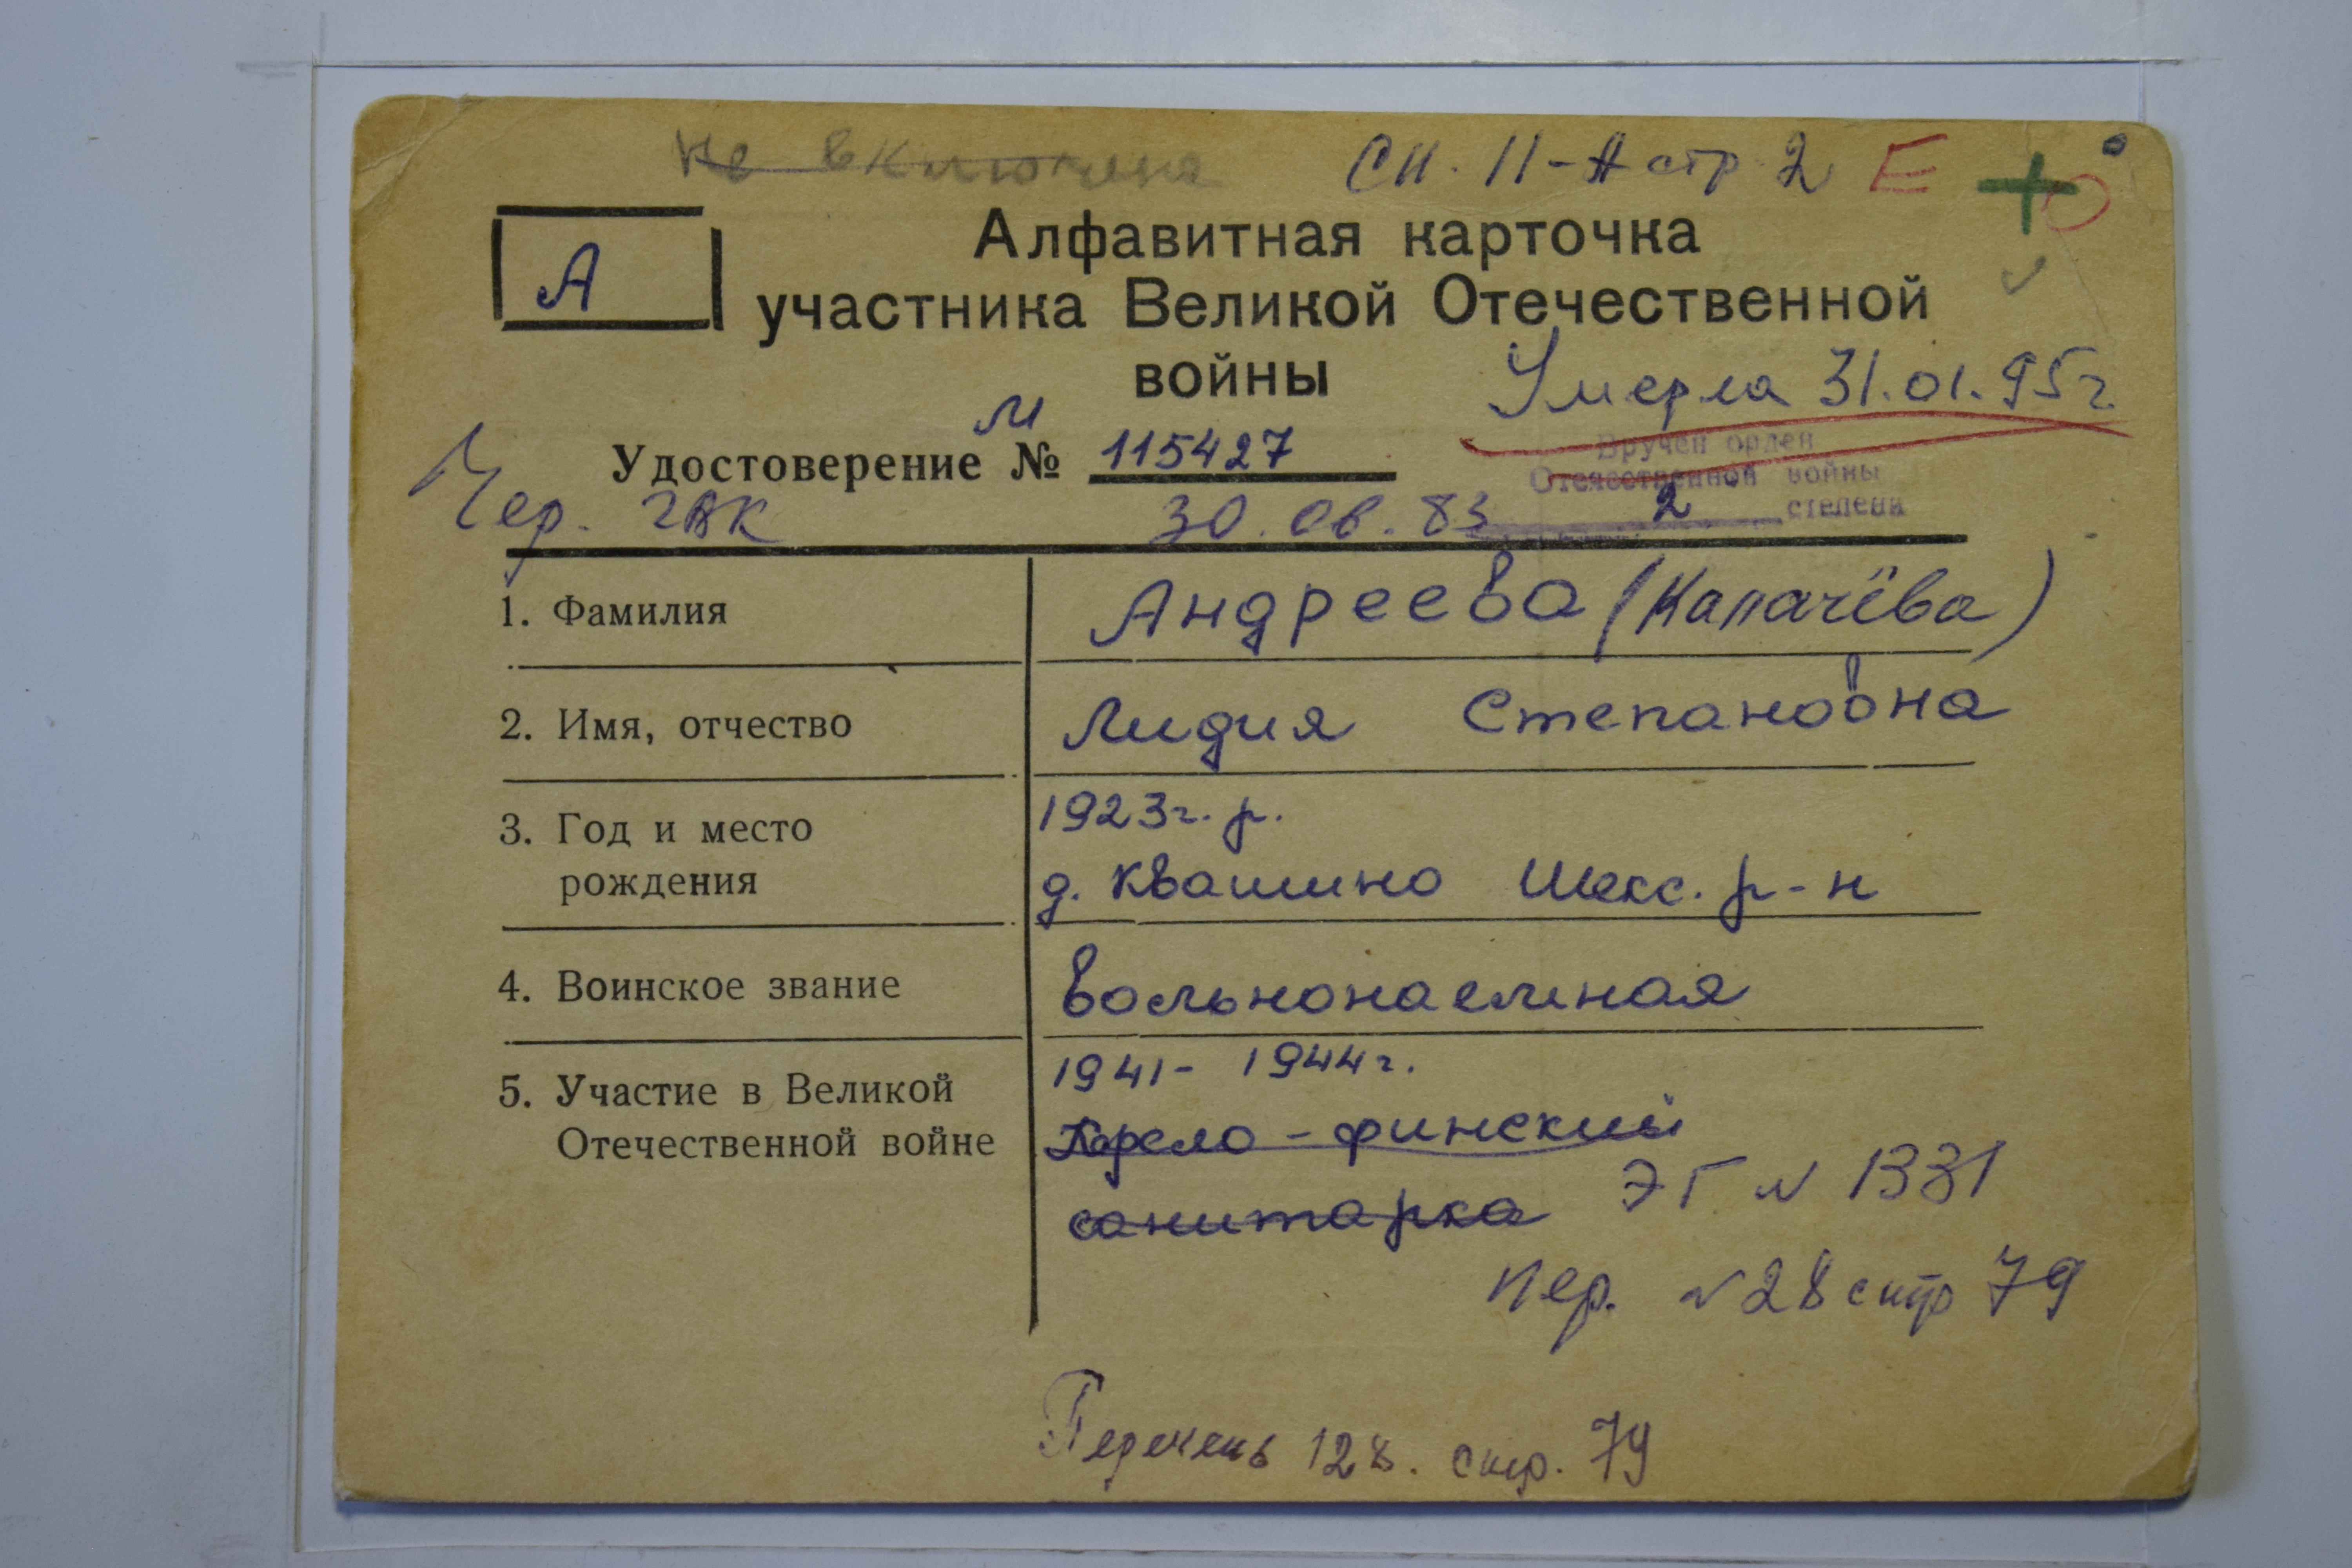 не включена
СП. 11-А стр 2 Е
А
Алфавитная карточка
участника Великой Отечественной
войны
Умерла 31.01.95г.
м
Удостоверение № 115427
Вручен орден
Отечественной войны
2 степени
Чер. ГВК 30.06.83
1. Фамилия Андреева (Капачёва)
2. Имя, отчество Лидия Степановна
3. Год и место 1923г. р.
рождения д. Квашнино Шекс. р-н
4. Воинское звание вольнонаемная
5. Участие в Великой 1941- 1944г.
Отечественной войне Карело-финский
санитарка ЭГ N 1331
Пер. N 28 стр 79
Перечень 128. стр. 79